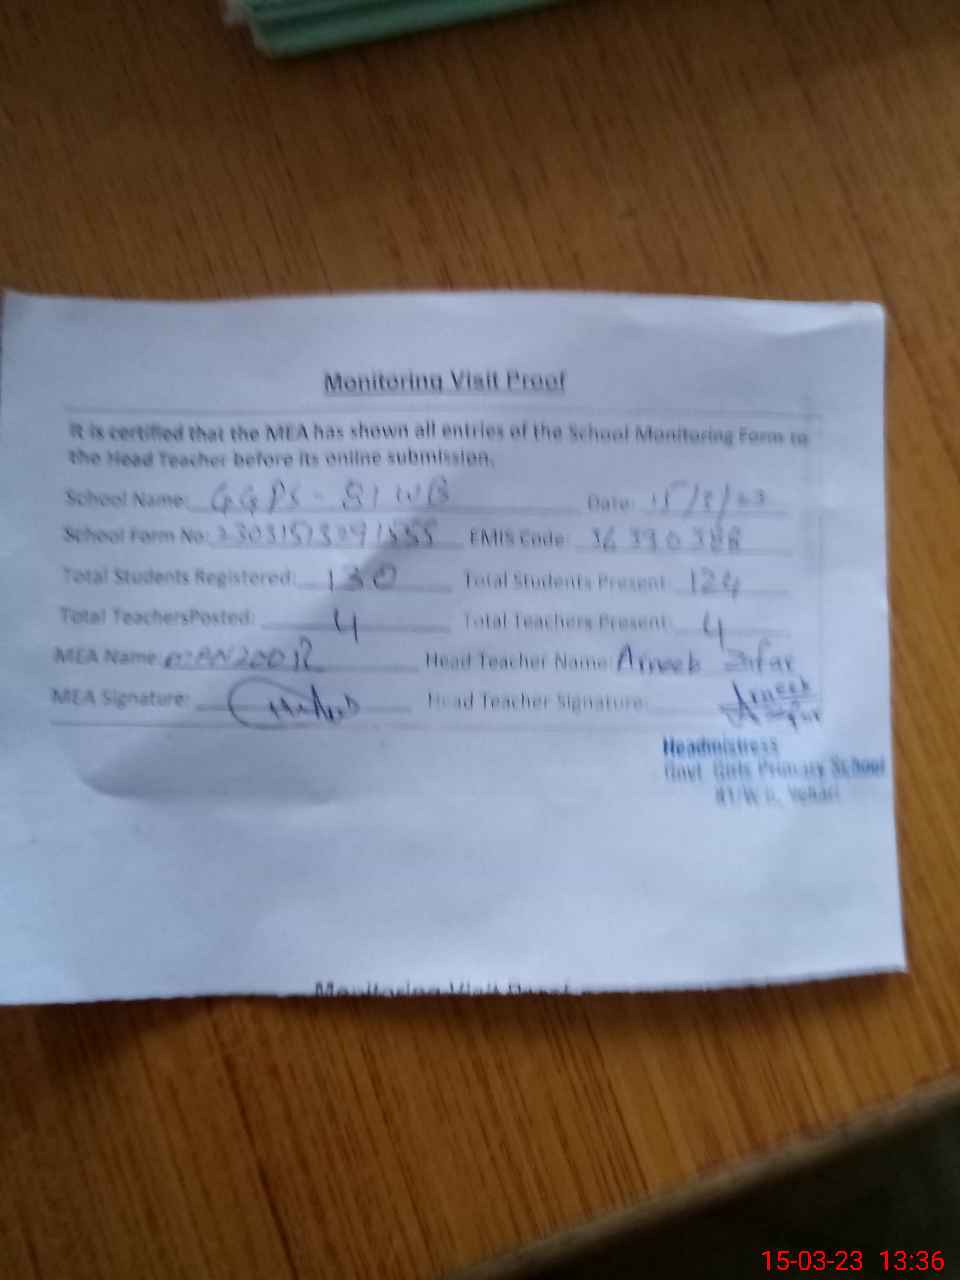 Monitoring Visit Proof
It is certified that the MEA has shown all entries of the School Monitoring Form to
the Head Teacher before its online submission.
School Name: GGPS - 81 WB Date: 15/3/23
School Form No: EMIS Code: 36390388
Total Students Registered: 130 Total Students Present: 124
Total TeachersPosted: 4 Total Teachers Present: 4
MEA Name: Head Teacher Name: Arneeb Zafar
MEA Signature: Head Teacher Signature: Arneeb Zafar
Headmistress
Govt Girls Primary School
81/W.B, Vehari
Monitoring Visit Proof
15-03-23 13:36